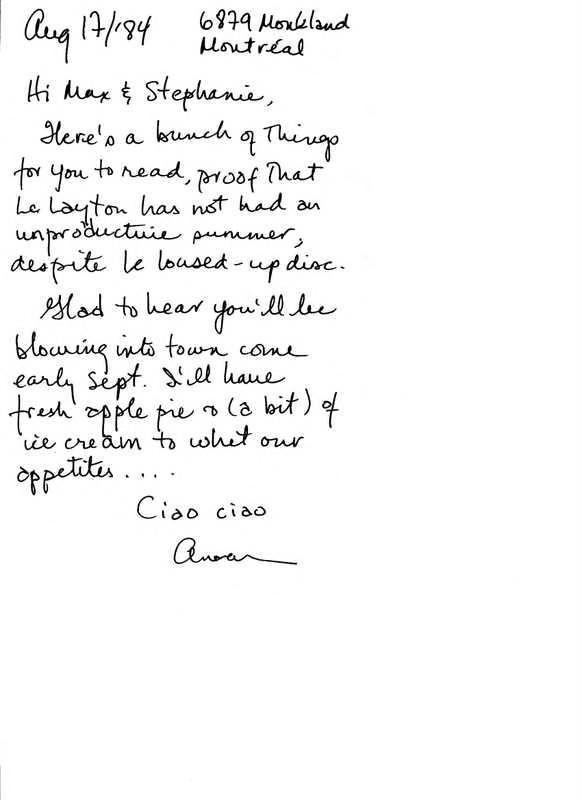 Aug 17/'84
6879 Monkland
Montréal
Hi Max & Stephanie,
Here's a bunch of Things
for you to read, proof That
Le Layton has not had an
unproductive summer,
despite le loused-up disc.
Glad to hear you'll be
blowing into town come
early Sept. I'll have
fresh apple pie & (a bit) of
ice cream to whet our
appetites....
Ciao ciao